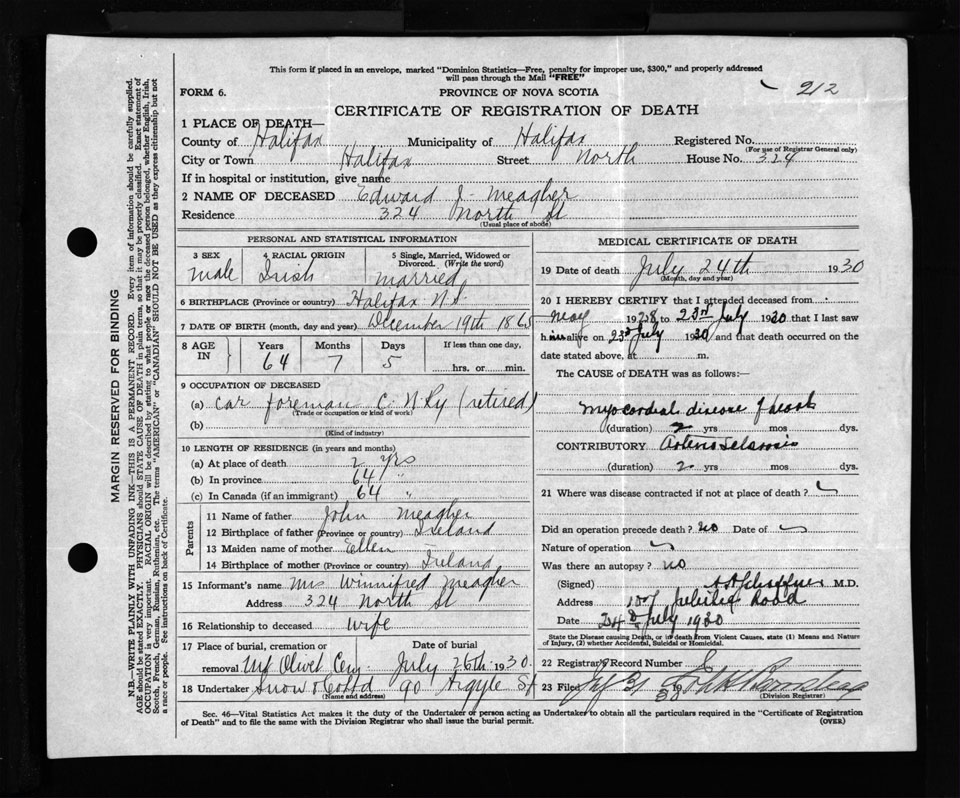 This form if placed in an envelope, marked "Dominion Statistics—Free, penalty for improper use, $300," and properly addressed
will pass through the Mail "FREE"
212
FORM 6.
PROVINCE OF NOVA SCOTIA
CERTIFICATE OF REGISTRATION OF DEATH
1 PLACE OF DEATH—
County of Halifax Municipality of Halifax Registered No.
(For use of Registrar General only)
City or Town Halifax Street North House No. 324
If in hospital or institution, give name
2 NAME OF DECEASED Edward J. Meagher
Residence 324 North St
(Usual place of abode)
PERSONAL AND STATISTICAL INFORMATION
3 SEX 4 RACIAL ORIGIN 5 Single, Married, Widowed or Divorced. (Write the word)
Male Irish Married
6 BIRTHPLACE (Province or country) Halifax N.S.
7 DATE OF BIRTH (month, day and year) December 19th 1865
8 AGE IN Years Months Days If less than one day,
64 7 5 hrs. or min.
9 OCCUPATION OF DECEASED
(a) Car foreman C. N Ry (retired)
(Trade or occupation or kind of work)
(b)
(Kind of industry)
10 LENGTH OF RESIDENCE (in years and months)
(a) At place of death 2 yrs
(b) In province 64 "
(c) In Canada (if an immigrant) 64 "
Parents
11 Name of father John Meagher
12 Birthplace of father (Province or country) Ireland
13 Maiden name of mother Ellen
14 Birthplace of mother (Province or country) Ireland
15 Informant's name Mrs Winnifred Meagher
Address 324 North St
16 Relationship to deceased wife
17 Place of burial, cremation or removal Date of burial
Mt Olivet Cem. July 26th 1930.
18 Undertaker Snow & Co Ltd 90 Argyle St
(Name and address)
MEDICAL CERTIFICATE OF DEATH
19 Date of death July 24th 1930
(Month, day and year)
20 I HEREBY CERTIFY that I attended deceased from
May 1928 to 23rd July 1930 that I last saw
him alive on 23rd July 1930 and that death occurred on the
date stated above, at m.
The CAUSE of DEATH was as follows:—
Myocardial disease of heart
(duration) 2 yrs mos dys.
CONTRIBUTORY
(duration) 2 yrs mos dys.
21 Where was disease contracted if not at place of death?
Did an operation precede death? no Date of
Nature of operation
Was there an autopsy? no
(Signed) M.D.
Address Jubilee Road
Date 24th July 1930
State the Disease causing Death, or in death from Violent Causes, state (1) Means and Nature
of Injury, (2) whether Accidental, Suicidal or Homicidal.
22 Registrar's Record Number
23 Filed 19
(Division Registrar)
Sec. 46—Vital Statistics Act makes it the duty of the Undertaker or person acting as Undertaker to obtain all the particulars required in the "Certificate of Registration
of Death" and to file the same with the Division Registrar who shall issue the burial permit.
(OVER)
MARGIN RESERVED FOR BINDING
N.B.—WRITE PLAINLY WITH UNFADING INK—THIS IS A PERMANENT RECORD. Every item of information should be carefully supplied.
AGE should be stated EXACTLY. PHYSICIANS should STATE CAUSE OF DEATH in plain terms, so that it may be properly classified. Exact statement of
OCCUPATION is very important. RACIAL ORIGIN will be described by stating to what people or race the deceased person belonged, whether English, Irish,
Scotch, French, German, Russian, Ruthenian, etc. The terms "AMERICAN" or "CANADIAN" SHOULD NOT BE USED as they express citizenship but not
a race or people. See instructions on back of Certificate.